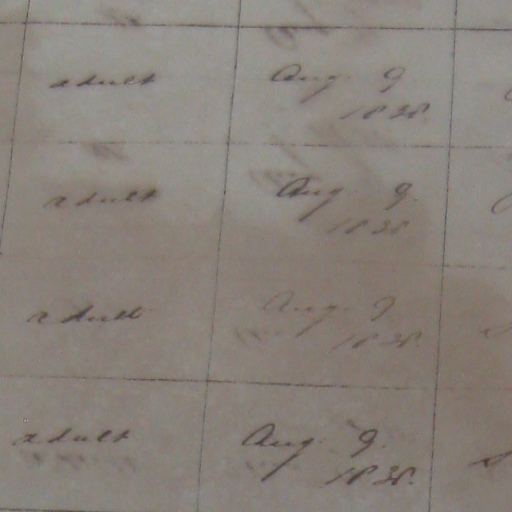 adult Aug. 9
1838
adult Aug. 9.
1838
adult Aug. 9
1838.
adult Aug. 9.
1838.